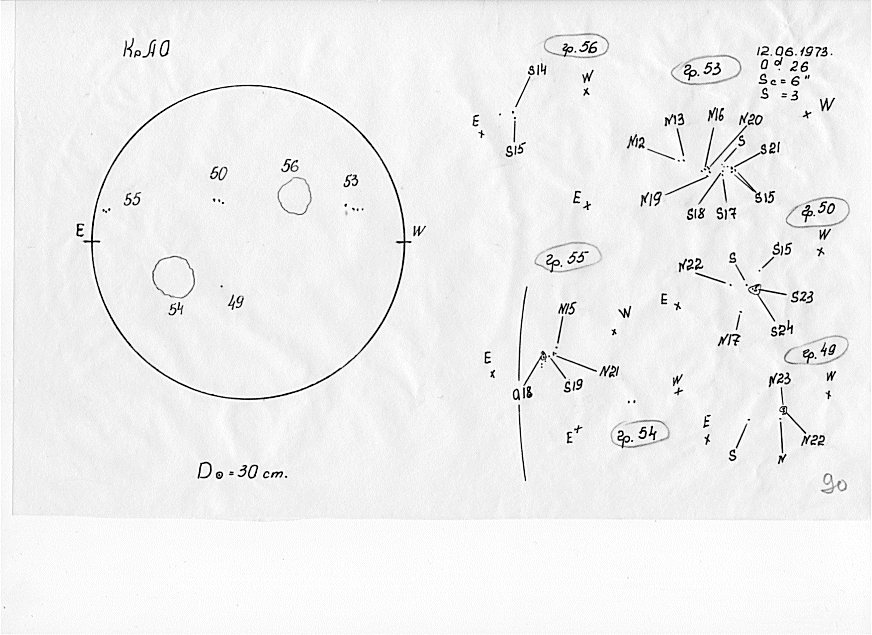 КрАО
12.06.1973.
0ᵈ. 26
Sc = 6"
S = 3
гр. 56
S14
W
E
S15
гр. 53
W
N13
N16
N20
S
N12
S21
N19
S18
S17
S15
E
50
56
53
55
E
W
54
49
гр. 50
W
S15
S
N22
S23
E
S24
N17
гр. 55
N15
W
E
N21
S19
018
гр. 49
N23
W
W
E
N22
S
N
гр. 54
E
D⊙ = 30 cm.
90